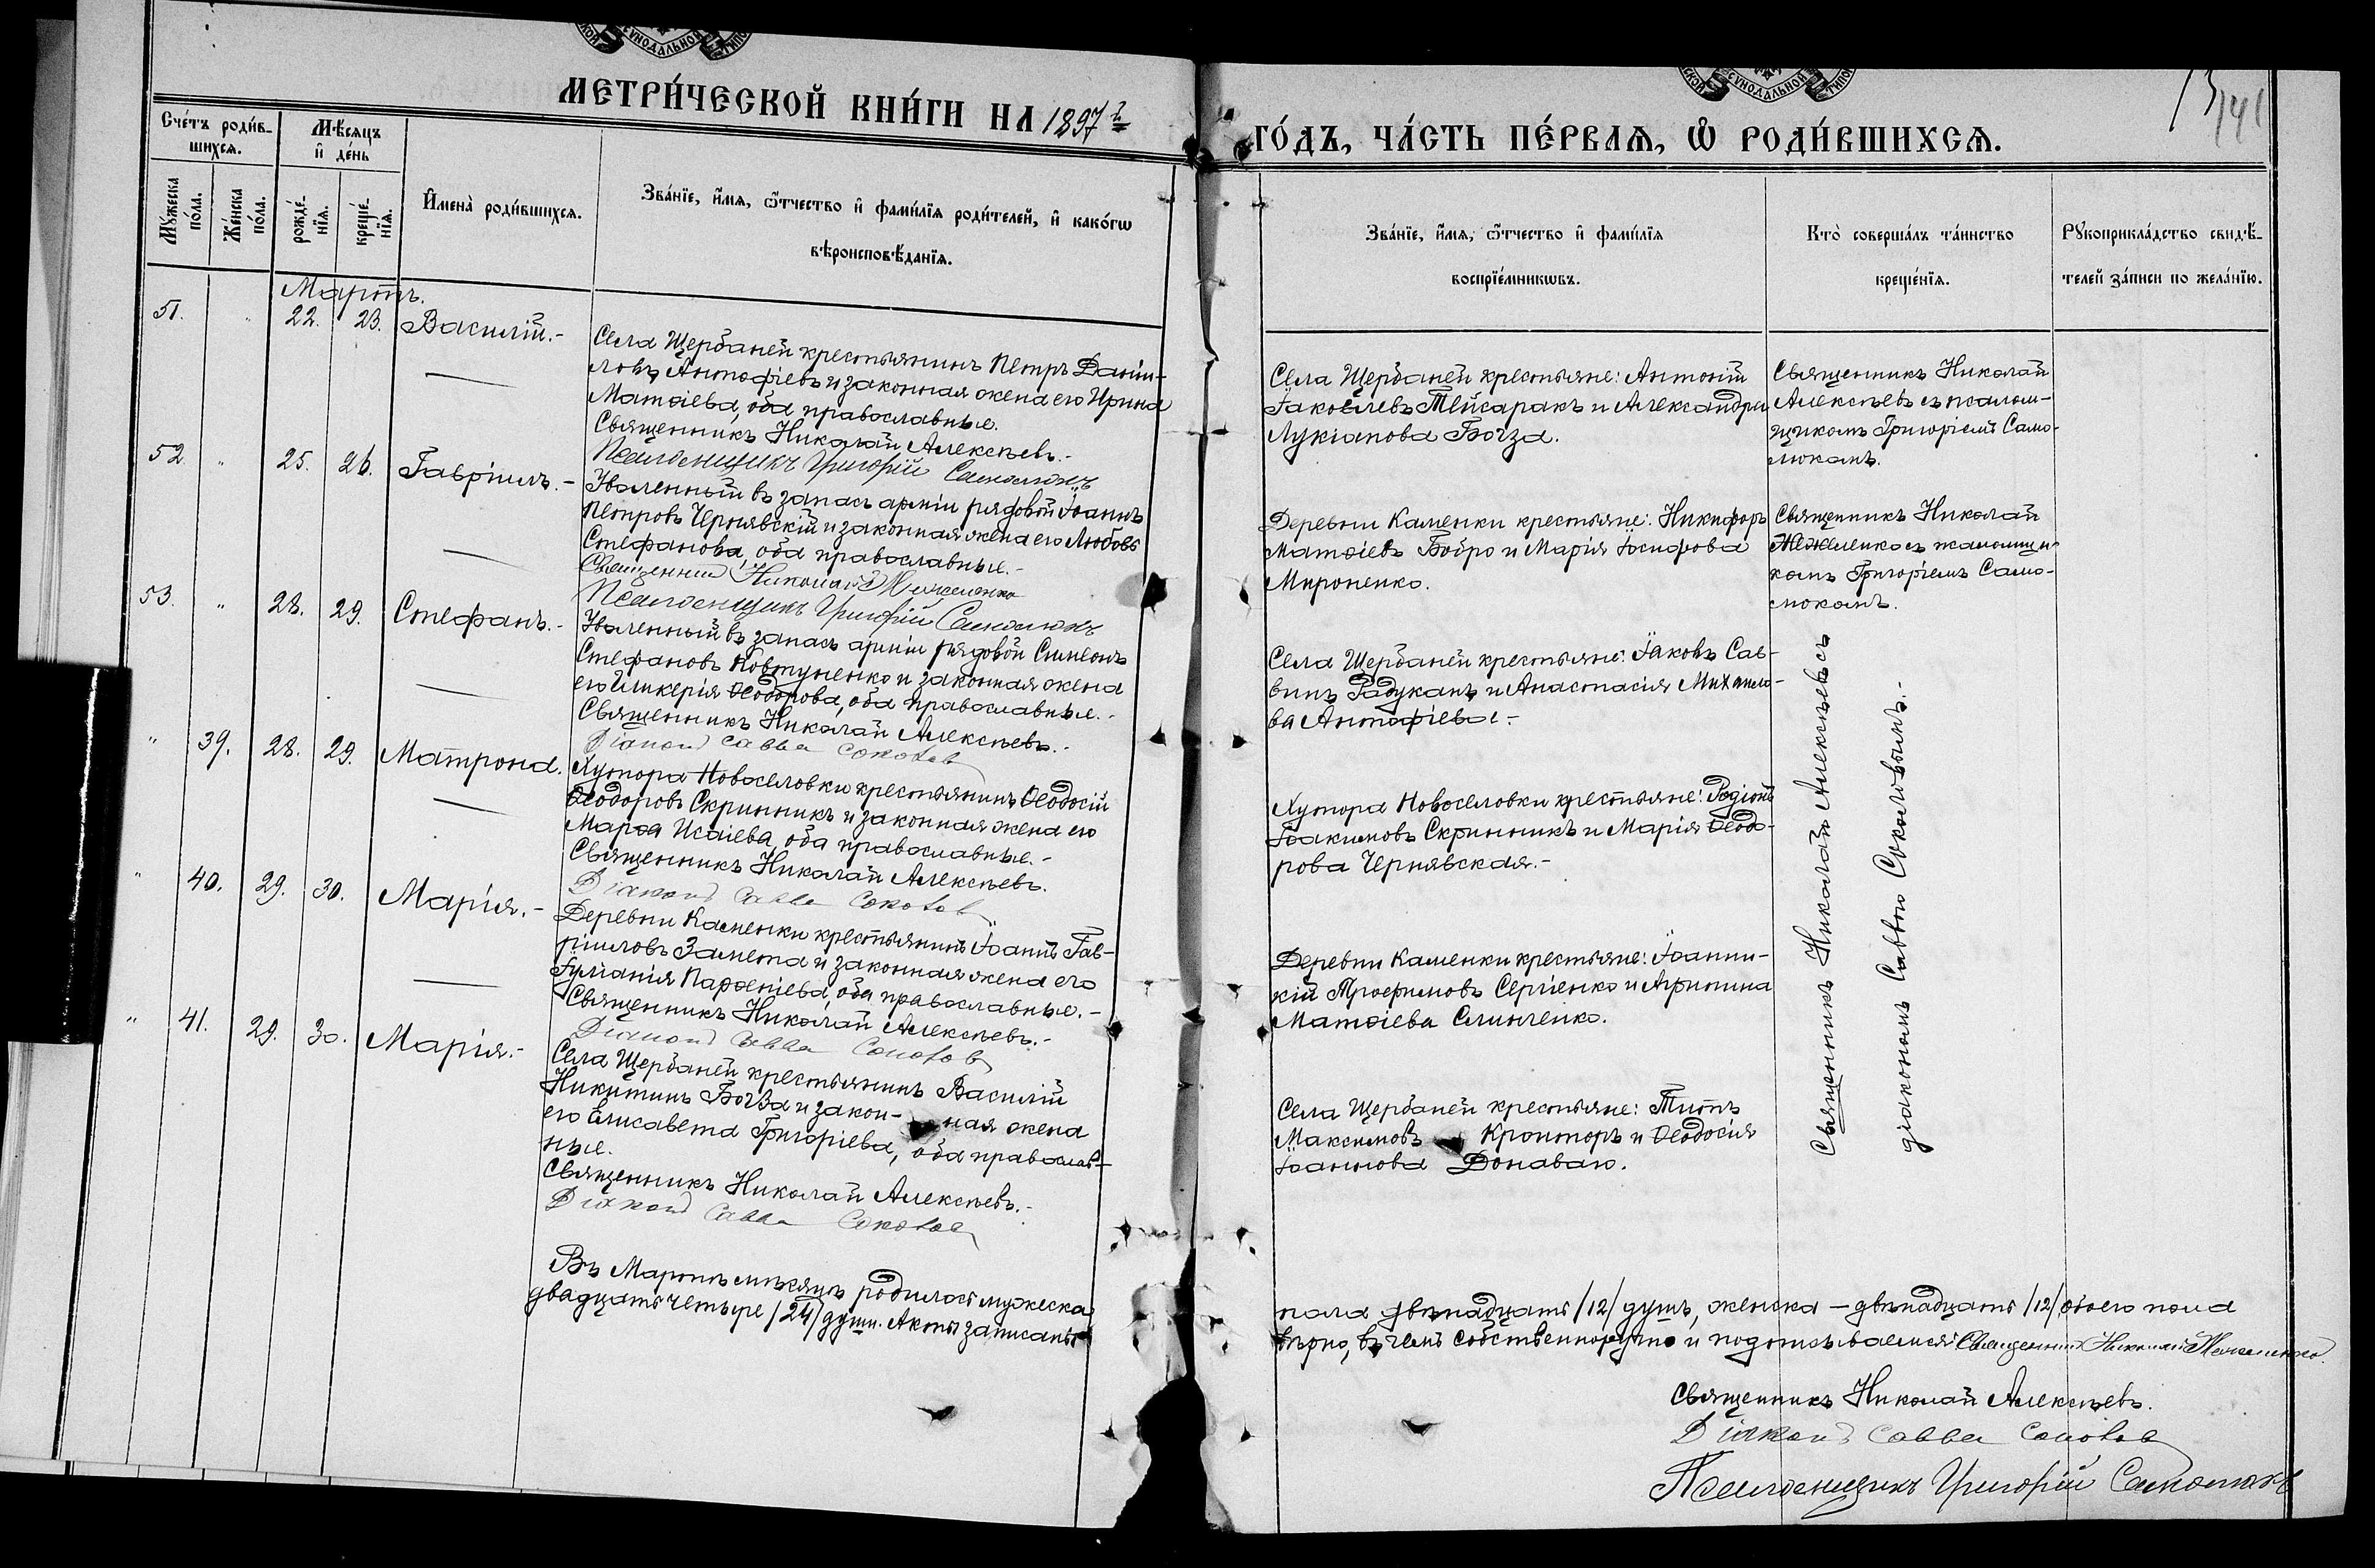 МЕТРИ́ЧЕСКОЙ КНИ́ГИ НА 1897 й
ГО́ДЪ, ЧА́СТЬ ПЕ́РВАѦ, Ѽ РОДИ́ВШИХСѦ.
141
Сче́тъ роди́в-
шихсѧ.
Мѣ́сяцъ
и҆ де́нь
Мꙋ́жеска
по́ла.
Же́нска
по́ла.
рожде́-
нїѧ.
креще́-
нїѧ.
И҆мена̀ роди́вшихсѧ.
Зва́нїе, и҆́мѧ, ѻ҆́тчество и҆ фами́лїѧ роди́телей, и҆ како́гѡ
вѣроисповѣ́данїѧ.
Зва́нїе, и҆́мѧ, ѻ҆́тчество и҆ фами́лїѧ
воспрїе́мникѡвъ.
Кто̀ соверша́лъ та́инство
креще́нїѧ.
Рꙋкоприкла́дство свидѣ́-
телей за́писи по жела́нїю.
Мартъ.
51. " 22. 23. Василій.-
Села Щербаней крестьянинъ Петръ Даніи-
ловъ Антофіевъ и законная жена его Ирина
Матѳіева, оба православные.
Священникъ Николай Алексѣевъ.-
Псаломщикъ Григорій Самолюкъ
Села Щербаней крестьяне: Антоній
Іаковлевъ Тейсаракъ и Александра
Лукіанова Богза.
Священникъ Николай
Алексѣевъ съ псалом-
щикомъ Григоріемъ Само-
люкомъ.
52. " 25. 26. Гавріилъ.-
Уволенный въ запасъ арміи рядовой Іоаннъ
Петровъ Чернявскій и законная жена его Любовь
Стефанова, оба православные.-
Священникъ Николай Межеленко
Псаломщикъ Григорій Самолюкъ
Деревни Каменки крестьяне: Никифоръ
Матѳіевъ Бобро и Марія Іосифова
Мироненко.
Священникъ Николай
съ псаломщи-
комъ Григоріемъ Само-
люкомъ.
53. " 28. 29. Стефанъ.-
Уволенный въ запасъ арміи рядовой Симеонъ
Стефановъ Ковтуненко и законная жена
его Гликерія Ѳеодорова, оба православные.-
Священникъ Николай Алексѣевъ.-
Діаконъ Савва Соколов
Села Щербаней крестьяне: Іаковъ Сав-
винъ Радуканъ и Анастасія Михаило-
ва Антофіева.-
Священникъ Николай Алексѣевъ съ
діакономъ Саввою Соколовымъ.-
" 39. 28. 29. Матрона.
Хутора Новоселовки крестьянинъ Ѳеодосій
Ѳеодоровъ Скринникъ и законная жена его
Марѳа Исаіева, оба православные.-
Священникъ Николай Алексѣевъ.
Діаконъ Савва Соколов
Хутора Новоселовки крестьяне: Родіонъ
Іоакимовъ Скринникъ и Марія Ѳеодо-
рова Чернявская.-
" 40. 29. 30. Марія.-
Деревни Каменки крестьянинъ Іоаннъ Гав-
ріиловъ Замета и законная жена его
Іуліанія Парѳеніева, оба православные.-
Священникъ Николай Алексѣевъ.-
Діаконъ Савва Соколов
Деревни Каменки крестьяне: Іоанни-
кій Трофимовъ Сергіенко и Агрипина
Матѳіева Слинченко.
" 41. 29. 30. Марія.-
Села Щербаней крестьянинъ Василій
Никитинъ Богза и закон- ная жена
его Елисавета Григоріева, оба православ-
ные.
Священникъ Николай Алексѣевъ.-
Діаконъ Савва Соколов
Села Щербаней крестьяне: Титъ
Максимовъ Кроиторъ и Ѳеодосія
Іоаннова Донаваю.
Въ Мартѣ мѣсяцѣ родилось мужеска
пола двѣнадцать /12/ душъ, женска - двѣнадцать /12/ обоего пола
двадцать четыре /24/ души. Акты записаны
вѣрно, въ чемъ собственноручно и подписываемся: Священникъ Николай Межеленко.
Священникъ Николай Алексѣевъ.
Діаконъ Савва Соколов
Псаломщикъ Григорій Самолюкъ